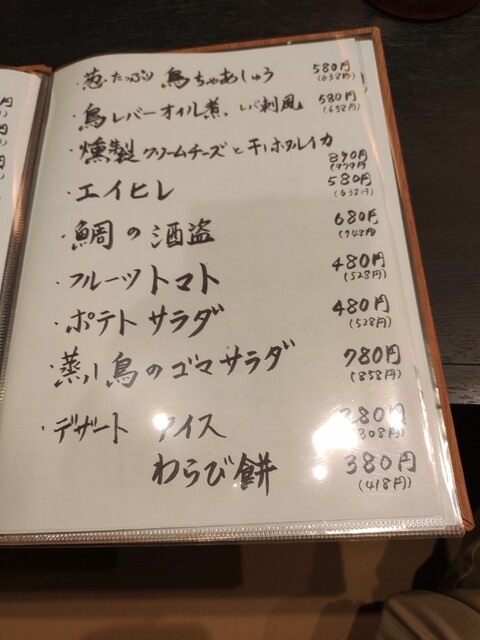 ・葱たっぷり 鳥ちゃあしゅう 580円
(638円)
・鳥レバーオイル煮、レバ刺風 580円
(638円)
・燻製クリームチーズと干しホタルイカ
890円
(979円)
・エイヒレ 580円
(638円)
・鯛の酒盗 680円
(748円)
・フルーツトマト 480円
(528円)
・ポテトサラダ 480円
(528円)
・蒸し鳥のゴマサラダ 780円
(858円)
・デザート アイス 280円
(308円)
わらび餅 380円
(418円)